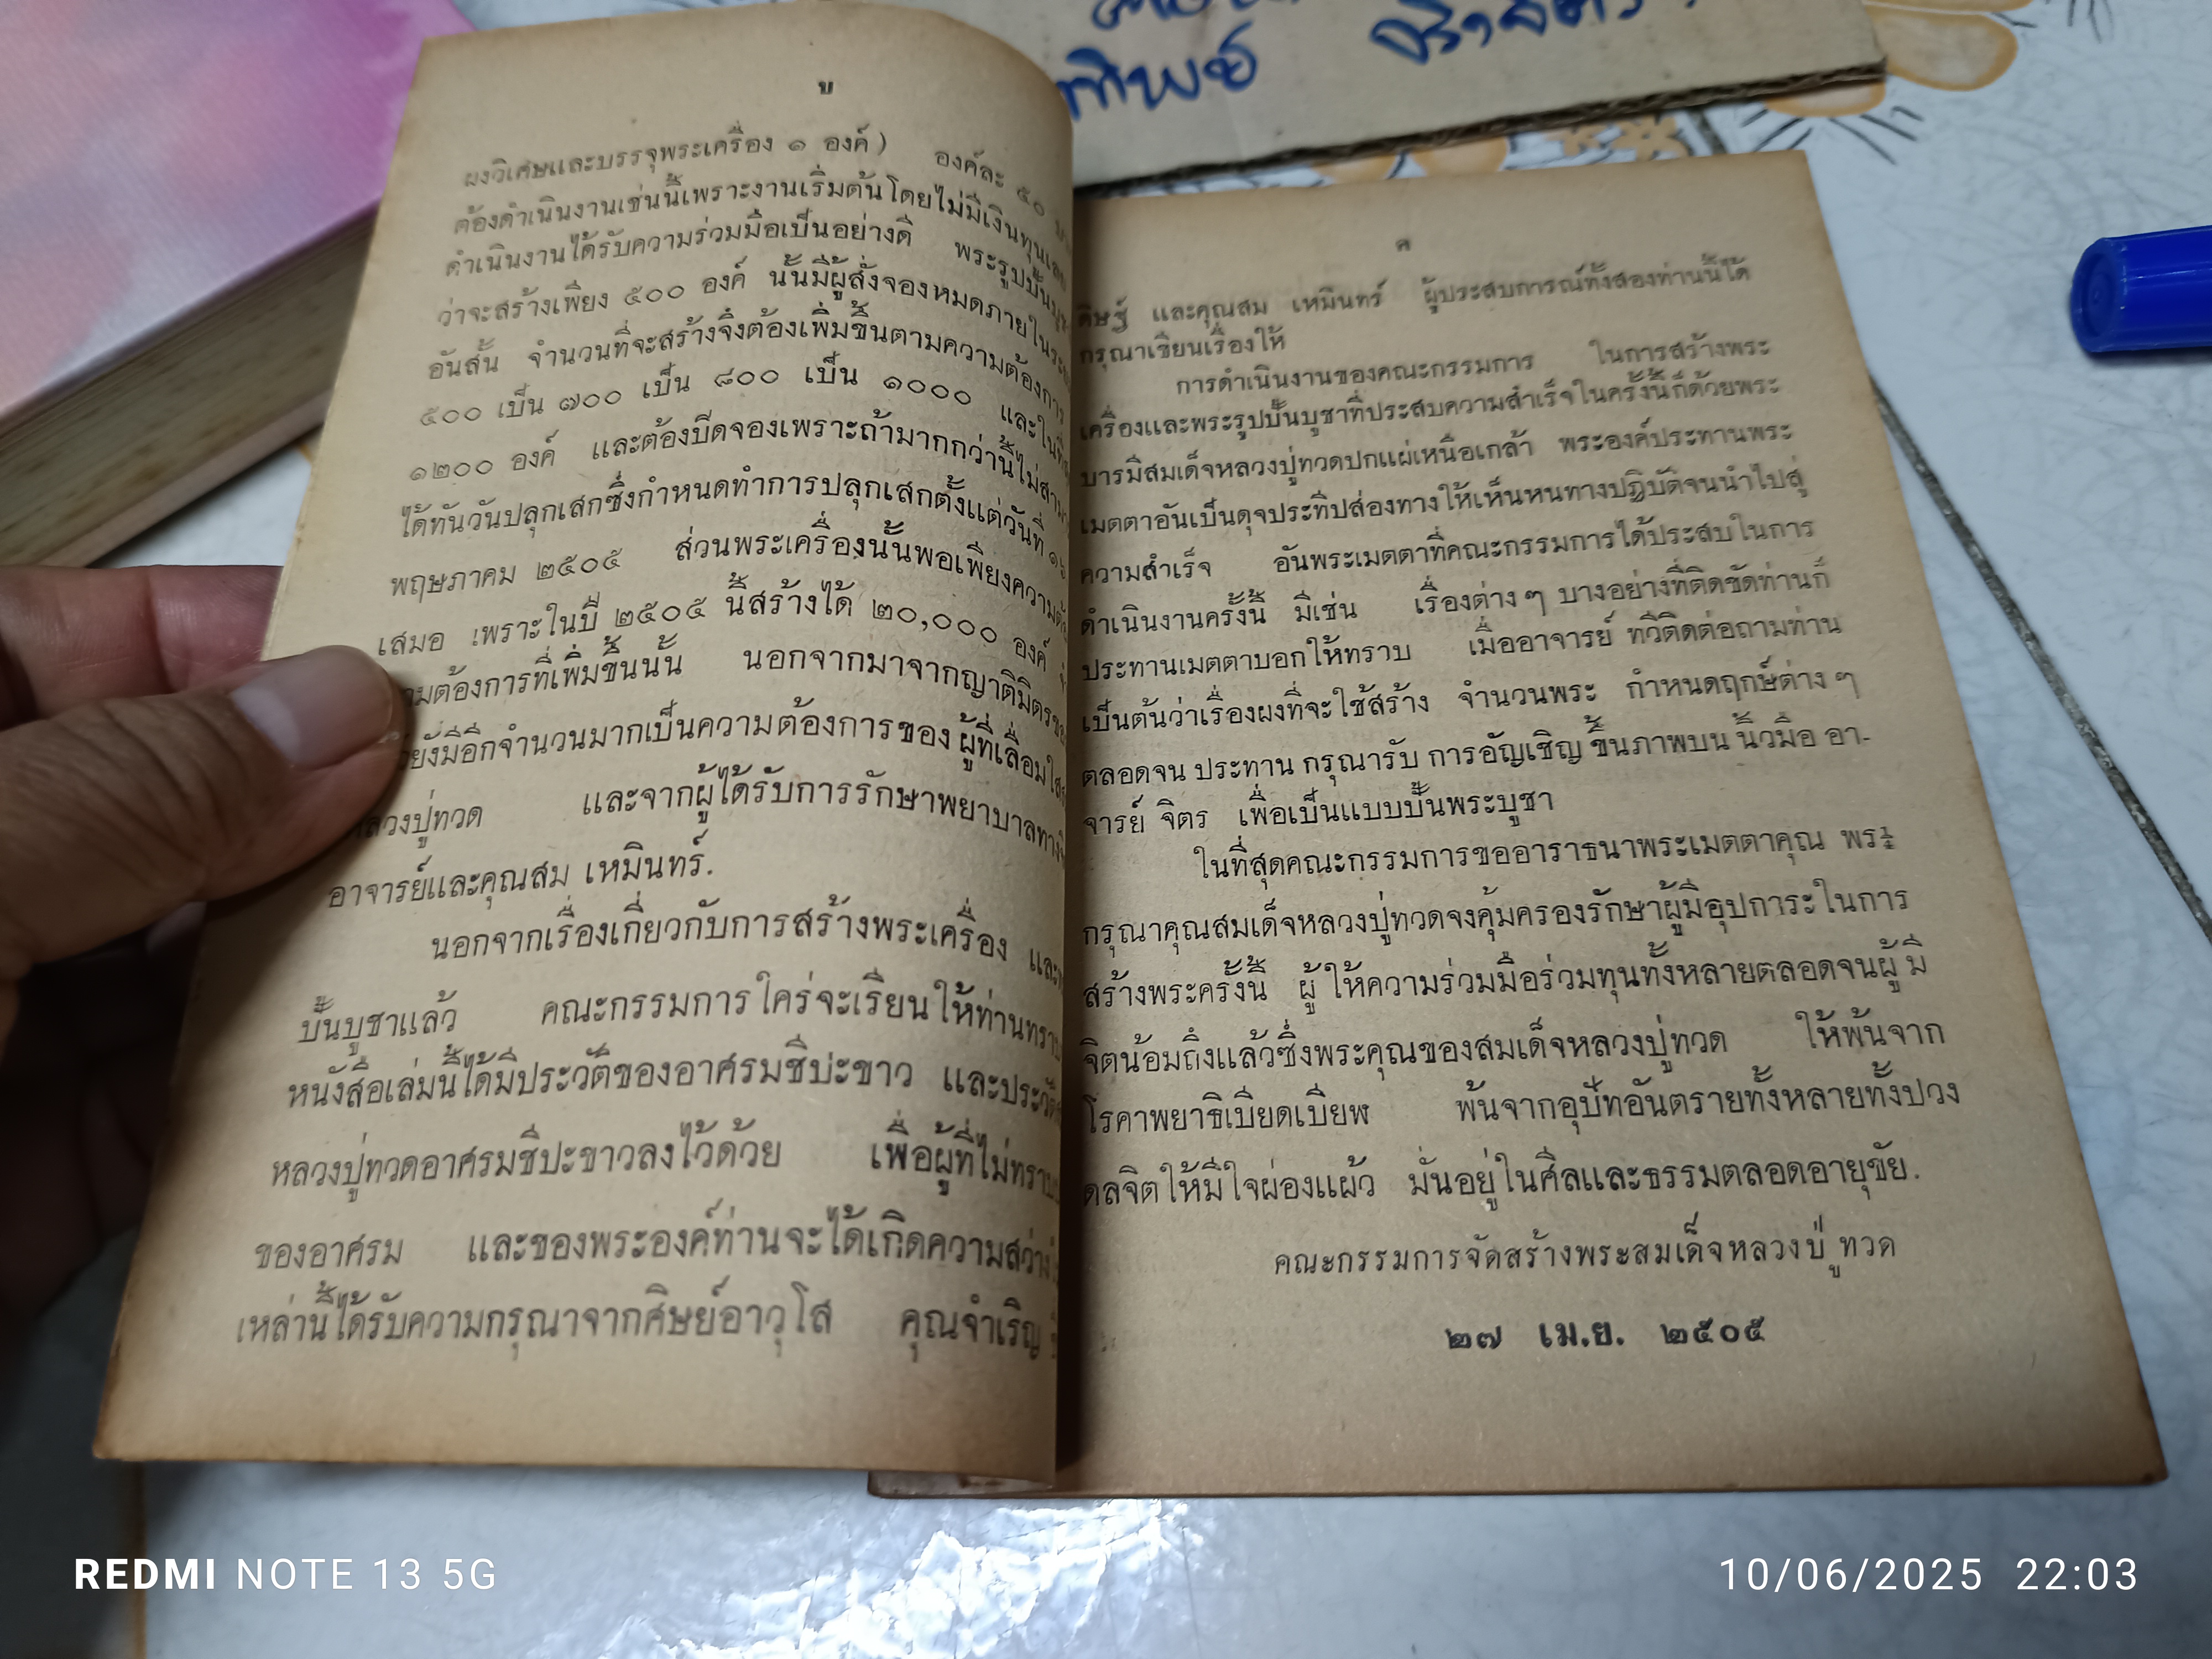 ข
ผงวิเศษและบรรจุพระเครื่อง ๑ องค์) องค์ละ ๕๐
ต้องดำเนินงานเช่นนี้เพราะงานเริ่มต้นโดยไม่มีเงินทุนเลย
ดำเนินงานได้รับความร่วมมือเป็นอย่างดี พระรูปปั้นบูชา
ว่าจะสร้างเพียง ๕๐๐ องค์ นั้นมีผู้สั่งจองหมดภายในระยะ
อันสั้น จำนวนที่จะสร้างจึงต้องเพิ่มขึ้นตามความต้องการ
๕๐๐ เป็น ๗๐๐ เป็น ๘๐๐ เป็น ๑๐๐๐ และในที่สุด
๑๒๐๐ องค์ และต้องปิดจองเพราะถ้ามากกว่านี้ไม่
ได้ทันวันปลุกเสกซึ่งกำหนดทำการปลุกเสกตั้งแต่วันที่
พฤษภาคม ๒๕๐๕ ส่วนพระเครื่องนั้นพอเพียง
เสมอ เพราะในปี ๒๕๐๕ นี้สร้างได้ ๒๐,๐๐๐ องค์
ต้องการที่เพิ่มขึ้นนั้น นอกจากมาจากญาติมิตร
ยังมีอีกจำนวนมากเป็นความต้องการของ ผู้ที่เลื่อมใส
หลวงปู่ทวด และจากผู้ได้รับการรักษาพยาบาล
อาจารย์และคุณสม เหมินทร์.
นอกจากเรื่องเกี่ยวกับการสร้างพระเครื่อง
ปั้นบูชาแล้ว คณะกรรมการใคร่จะเรียนให้ท่านทราบ
หนังสือเล่มนี้ได้มีประวัติของอาศรมชีปะขาว และประวัติ
หลวงปู่ทวดอาศรมชีปะขาวลงไว้ด้วย เพื่อผู้ที่ไม่ทราบ
ของอาศรม และของพระองค์ท่านจะได้เกิดความสว่าง
เหล่านี้ได้รับความกรุณาจากศิษย์อาวุโส คุณจำเริญ
ค
ดิษฐ์ และคุณสม เหมินทร์ ผู้ประสบการณ์ทั้งสองท่านนี้ได้
กรุณาเขียนเรื่องให้
การดำเนินงานของคณะกรรมการ ในการสร้างพระ
เครื่องและพระรูปปั้นบูชาที่ประสบความสำเร็จในครั้งนี้ก็ด้วยพระ
บารมีสมเด็จหลวงปู่ทวดปกแผ่เหนือเกล้า พระองค์ประทานพระ
เมตตาอันเป็นดุจประทีปส่องทางให้เห็นหนทางปฏิบัติจนนำไปสู่
ความสำเร็จ อันพระเมตตาที่คณะกรรมการได้ประสบในการ
ดำเนินงานครั้งนี้ มีเช่น เรื่องต่าง ๆ บางอย่างที่ติดขัดท่านก็
ประทานเมตตาบอกให้ทราบ เมื่ออาจารย์ ทวีติดต่อถามท่าน
เป็นต้นว่าเรื่องผงที่จะใช้สร้าง จำนวนพระ กำหนดฤกษ์ต่าง ๆ
ตลอดจน ประทาน กรุณารับ การอัญเชิญ ขึ้นภาพบน นิ้วมือ อา-
จารย์ จิตร เพื่อเป็นแบบปั้นพระบูชา
ในที่สุดคณะกรรมการขออาราธนาพระเมตตาคุณ พระ
กรุณาคุณสมเด็จหลวงปู่ทวดจงคุ้มครองรักษาผู้มีอุปการะในการ
สร้างพระครั้งนี้ ผู้ ให้ความร่วมมือร่วมทุนทั้งหลายตลอดจนผู้ มี
จิตน้อมถึงแล้วซึ่งพระคุณของสมเด็จหลวงปู่ทวด ให้พ้นจาก
โรคาพยาธิเบียดเบียฬ พ้นจากอุปัทอันตรายทั้งหลายทั้งปวง
ดลจิตให้มีใจผ่องแผ้ว มั่นอยู่ในศีลและธรรมตลอดอายุขัย.
คณะกรรมการจัดสร้างพระสมเด็จหลวงปู่ ทวด
๒๗ เม.ย. ๒๕๐๕
REDMI NOTE 13 5G
10/06/2025 22:03